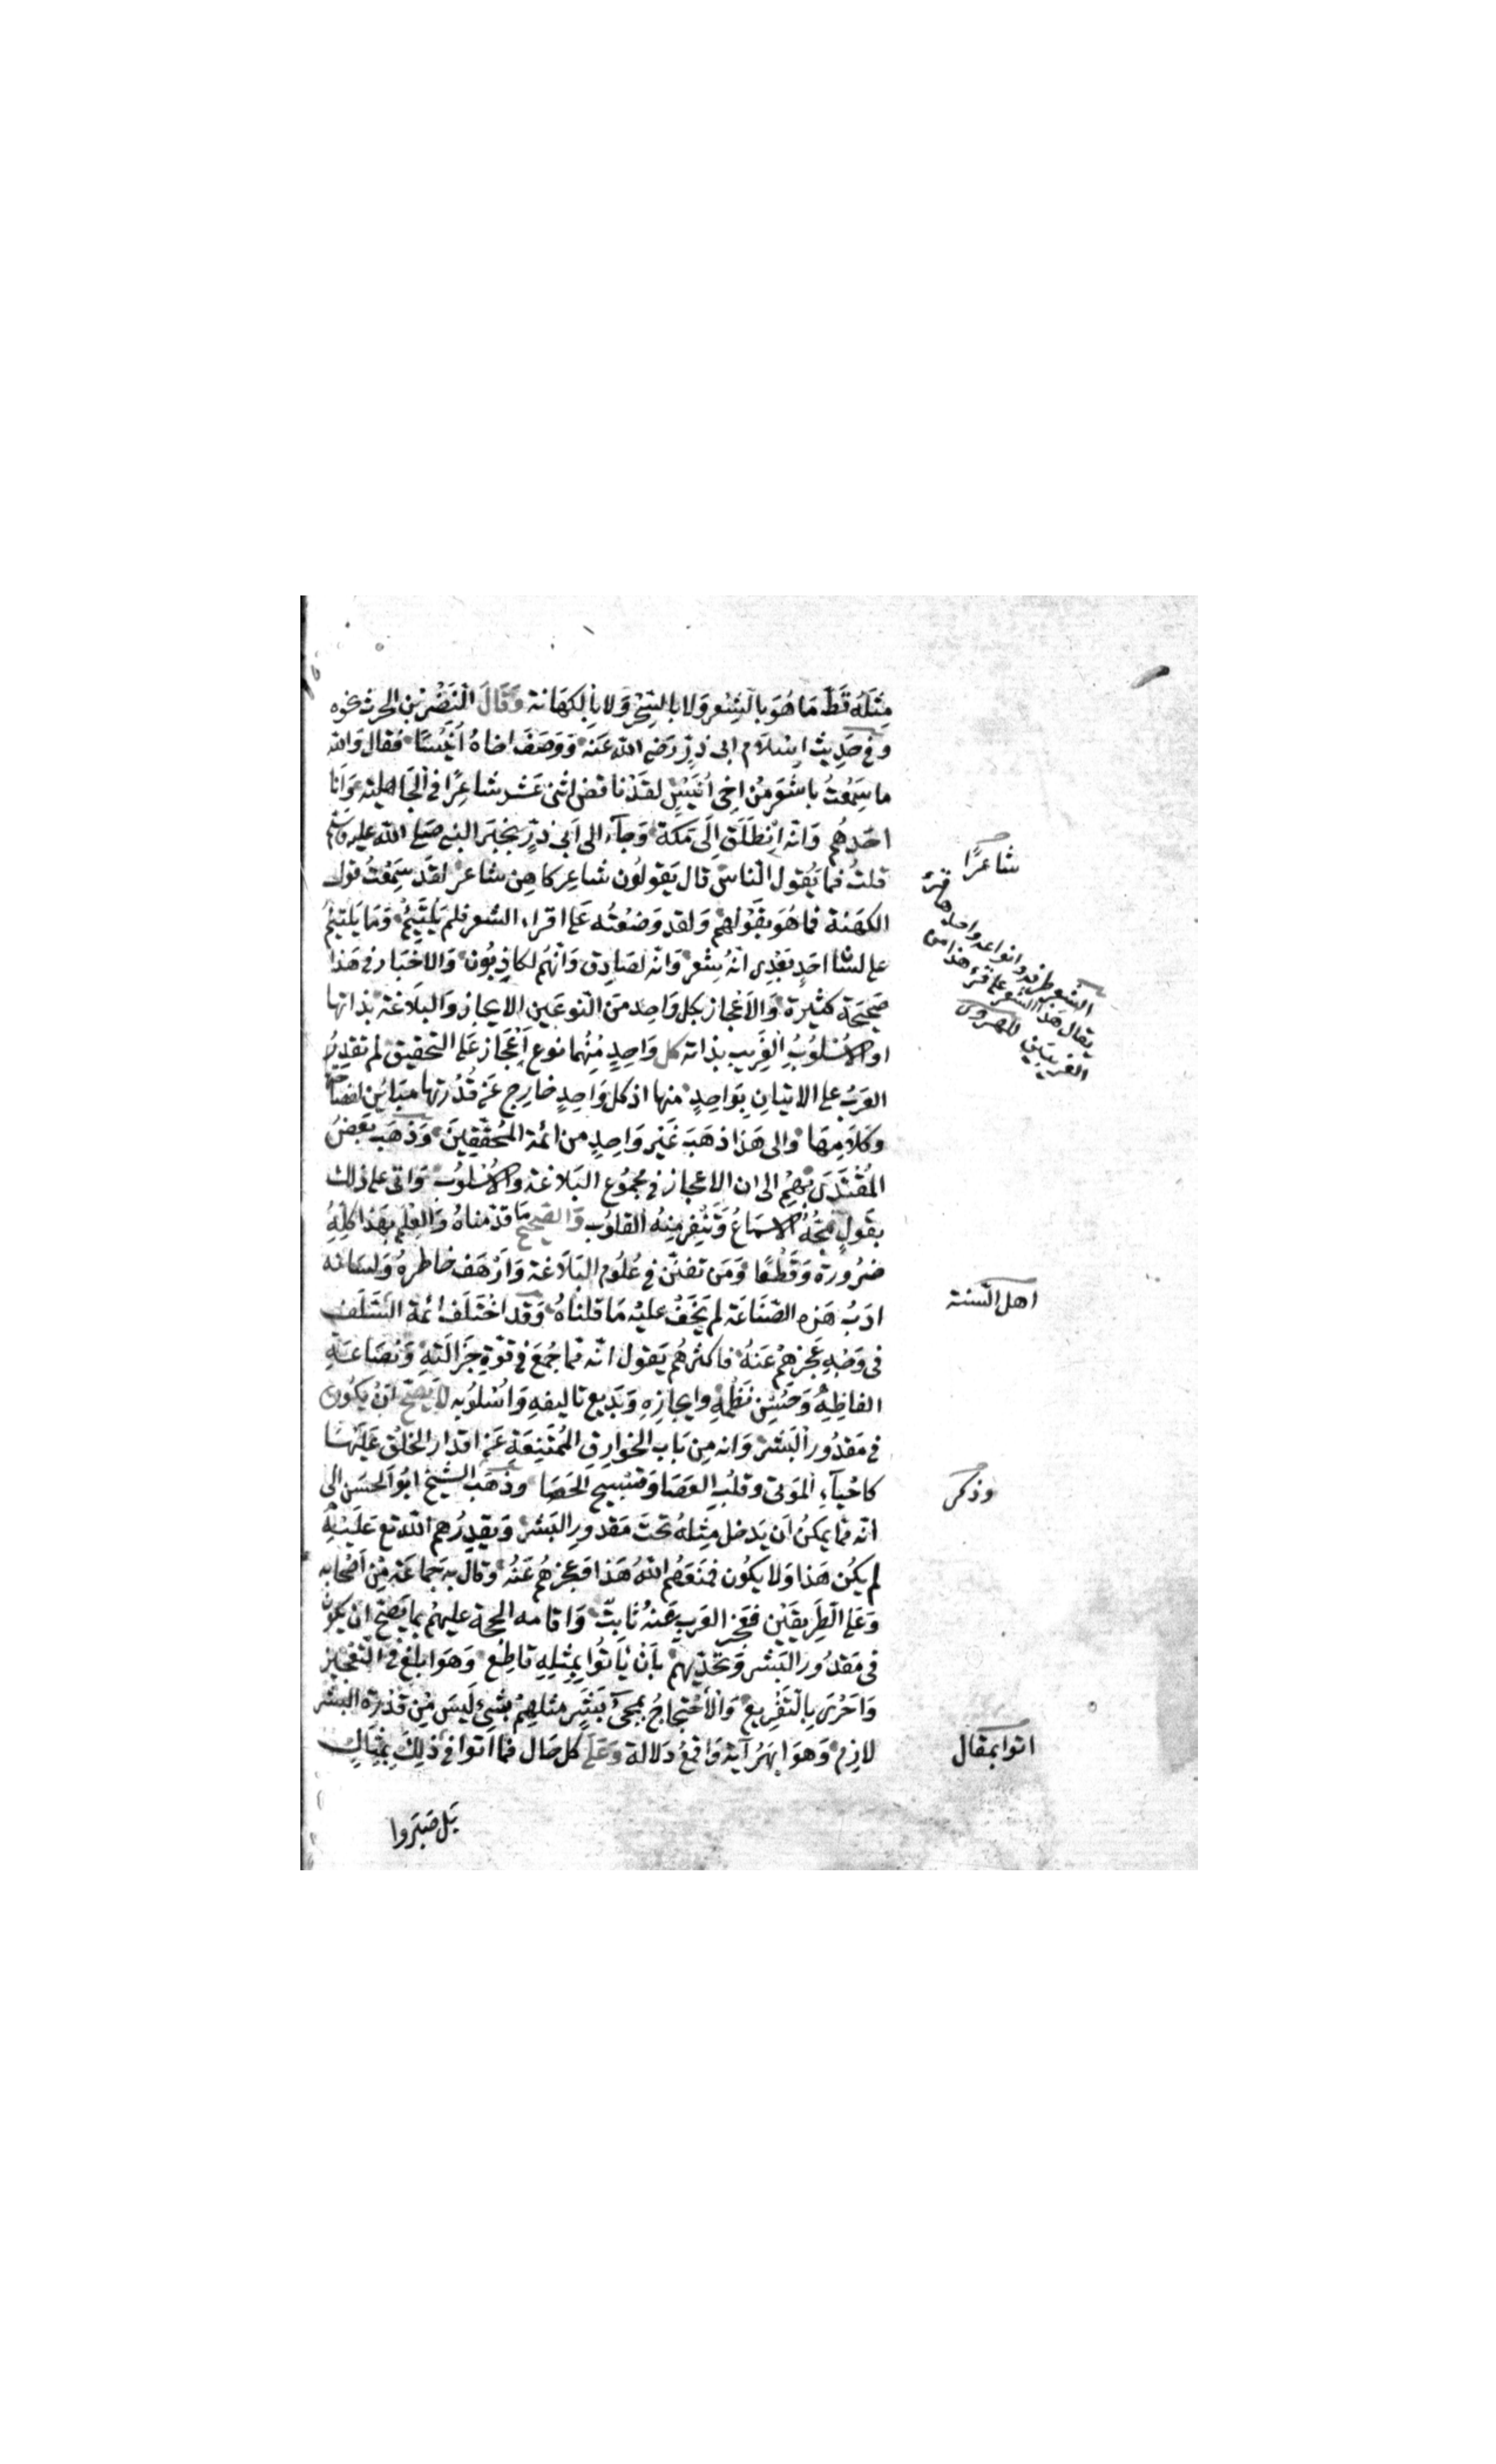 مِثْلَهُ قَطُّ مَا هُوَ بِالشِّعْرِ وَلَا بِالسِّحْرِ وَلَا بِالْكَهَانَةِ وَقَالَ النَّضْرُ بْنُ الحرث نحوه
وفي حَدِيث اِسْلَام ابى ذرٍّ رَضِىَ الله عَنهُ وَوَصَفَ اخاهُ اُنَيْسًا فقال وَالله
ما سَمِعْتُ بِاَشْعَرَ مِنْ اخِى اُنَيْسٍ لقَدْ ناقض اثنى عَشَر شاعِرًا فى الجَاهلية وَانَا
احَدهُم وَانّه انْطَلَقَ اِلَى مَكّة وَجآء الى اَبى ذرٍّ بخبَر النبى صَلى الله عليه وسلم
قلتُ فما يَقول النّاس قال يَقولُون شاعِر كاهِن سَاحر لقَد سَمِعْتُ قول
الكهَنة فما هُوَ بِقَوْلهِم وَلقد وَضَعْتُه عَلى اقراء الشعر فلم يَلْتَئِم وَمَا يَلْتَئِمُ
على لسَان احَدٍ بَعْدِى انّهُ شِعر وَانّه لصَادِق وَانّهُم لكاذِبُون وَالاخبَار فى هَذا
صَحِيحَة كثيرة وَالاعْجاز بكل وَاحِد مَن النّوعَين الايجاز وَالبلَاغة بذاتها
او الاُسْلُوبُ الغَرِيب بذاته كل وَاحِدٍ مِنْهُما نوع اِعْجَاز عَلى التحقيق لم تقدِرُ
العَرَبُ على الاتيانِ بِوَاحِدٍ منها اذ كل وَاحِدٍ خارِج عَن قُدْرتها مبَايِن لفصَاحتها
وكلَامِهَا وَالى هَذا ذهَبَ غَير وَاحِدٍ من ائمّة المُحقّقِينَ وَذهَب بَعضُ
المُقْتَدَى بهِم الى ان الاعجاز فى مجمُوع البَلَاغة والاُسْلُوب وَاتى على ذلك
بقَولٍ تَمُجُّهُ الاَسمَاعُ وَتَنْفِر مِنهُ القلوُب وَالصَّحِيح مَا قدّمناهُ وَالعِلم بهَذا كلّهِ
ضرُورة وَقَطْعًا وَمَن تفنّن فى عُلوُم البَلَاغة وَاَرْهَف خاطِرهُ وَلِسَانه
ادَبُ هَذِه الصّنَاعَة لم يَخَفْ عَليْه مَا قلنَاهُ وَقد اخْتَلَف ائمة السَّلَف
فى وَجْهِ عَجزِهِمْ عَنهُ فاكثرهُم يَقول انّه مّما جُمعَ فى قوّة جَزالَتهِ وَنصَاعَةِ
الفاظِهِ وَحُسْن نَظْمِهِ وايجازِهِ وَبَدِيع تاليفهِ وَاُسْلوُبه لَا يَصِحّ اَنْ يكُون
فى مَقدُور البَشَر وَانه مِن بَاب الخوارِق المُمْتَنِعَةِ عَن اقدار الخَلْق عَلَيْهَا
كاحْيآءِ المَوتى وقلْبِ العَصَا وَتسْبيح الحَصَا وذهَب الشيخ ابُو الحسَن الى
انّه مّما يمكنُ اَن يَدخل مِثلهُ تحتَ مَقدورِ البَشر وَيقدِرُهم الله تع عَلَيْهِ
لم يَكُن هَذا وَلا يَكُون فمنَعَهُم اللهُ هَذا وَعجزهُم عَنْهُ وَقال به جَمَاعَة مِنْ اَصْحَابه
وَعَلى الطَرِيقَيْن فعَجزِ العَرب عَنهُ ثابِتٌ وَاقامة الحجة عليهمْ بما يَصِحّ ان يكوُنَ
فى مَقدُور البَشر وَتحَدّيهمْ بأنْ يَأتُوا بِمِثلِهِ قاطِع وَهوَ ابلغ فى التّعْجيز
وَاحْرَى بالتّقْرِيعِ وَالاحْتِجاجُ بمجئ بَشَرٍ مثلهِمْ بشئ لَيسَ مِنْ قدْرة البَشر
لازِم وَهوَ ابهَرُ آية وَاقمَعُ دَلالة وَعَلى كل حَال فما اتوا فى ذلِكَ بِمِثَال
بَل صَبَروا
شاعرًا
الشعر طرقه وانواعه واحدها قَرْءٌ
يقال هذا الشعر على قرء هذا من
الغريبين للهروى
اهل السّنة
وذكر
اتوا بمقال